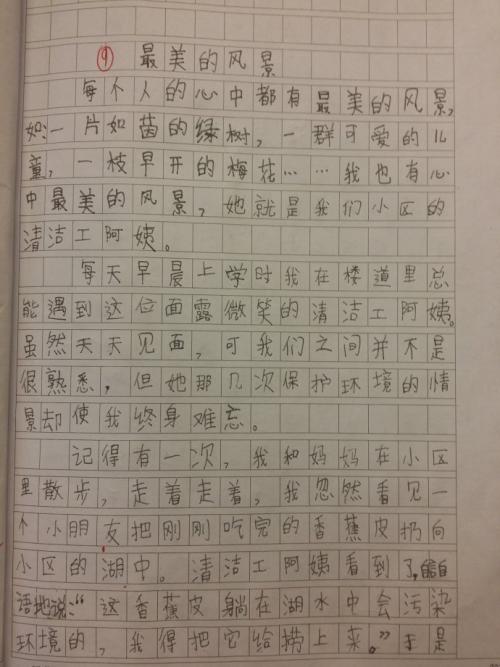 ⑨ 最美的风景
每个人的心中都有最美的风景,
如:一片如茵的绿树,一群可爱的儿
童,一枝早开的梅花……我也有心
中最美的风景,她就是我们小区的
清洁工阿姨。
每天早晨上学时我在楼道里总
能遇到这位面露微笑的清洁工阿姨。
虽然天天见面,可我们之间并不是
很熟悉,但她那几次保护环境的情
景却使我终身难忘。
记得有一次,我和妈妈在小区
里散步,走着走着,我忽然看见一
个小朋友把刚刚吃完的香蕉皮扔向
小区的湖中。清洁工阿姨看到了,自
语地说:“这香蕉皮躺在湖水中会污染
环境的,我得把它给捞上来。”于是